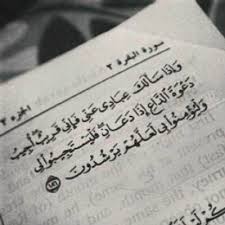 سورة البقرة ٢
الجزء ٢
وَإِذَا سَأَلَكَ عِبَادِي عَنِّي فَإِنِّي قَرِيبٌ أُجِيبُ
دَعْوَةَ الدَّاعِ إِذَا دَعَانِ فَلْيَسْتَجِيبُوا لِي
وَلْيُؤْمِنُوا بِي لَعَلَّهُمْ يَرْشُدُونَ ١٨٦